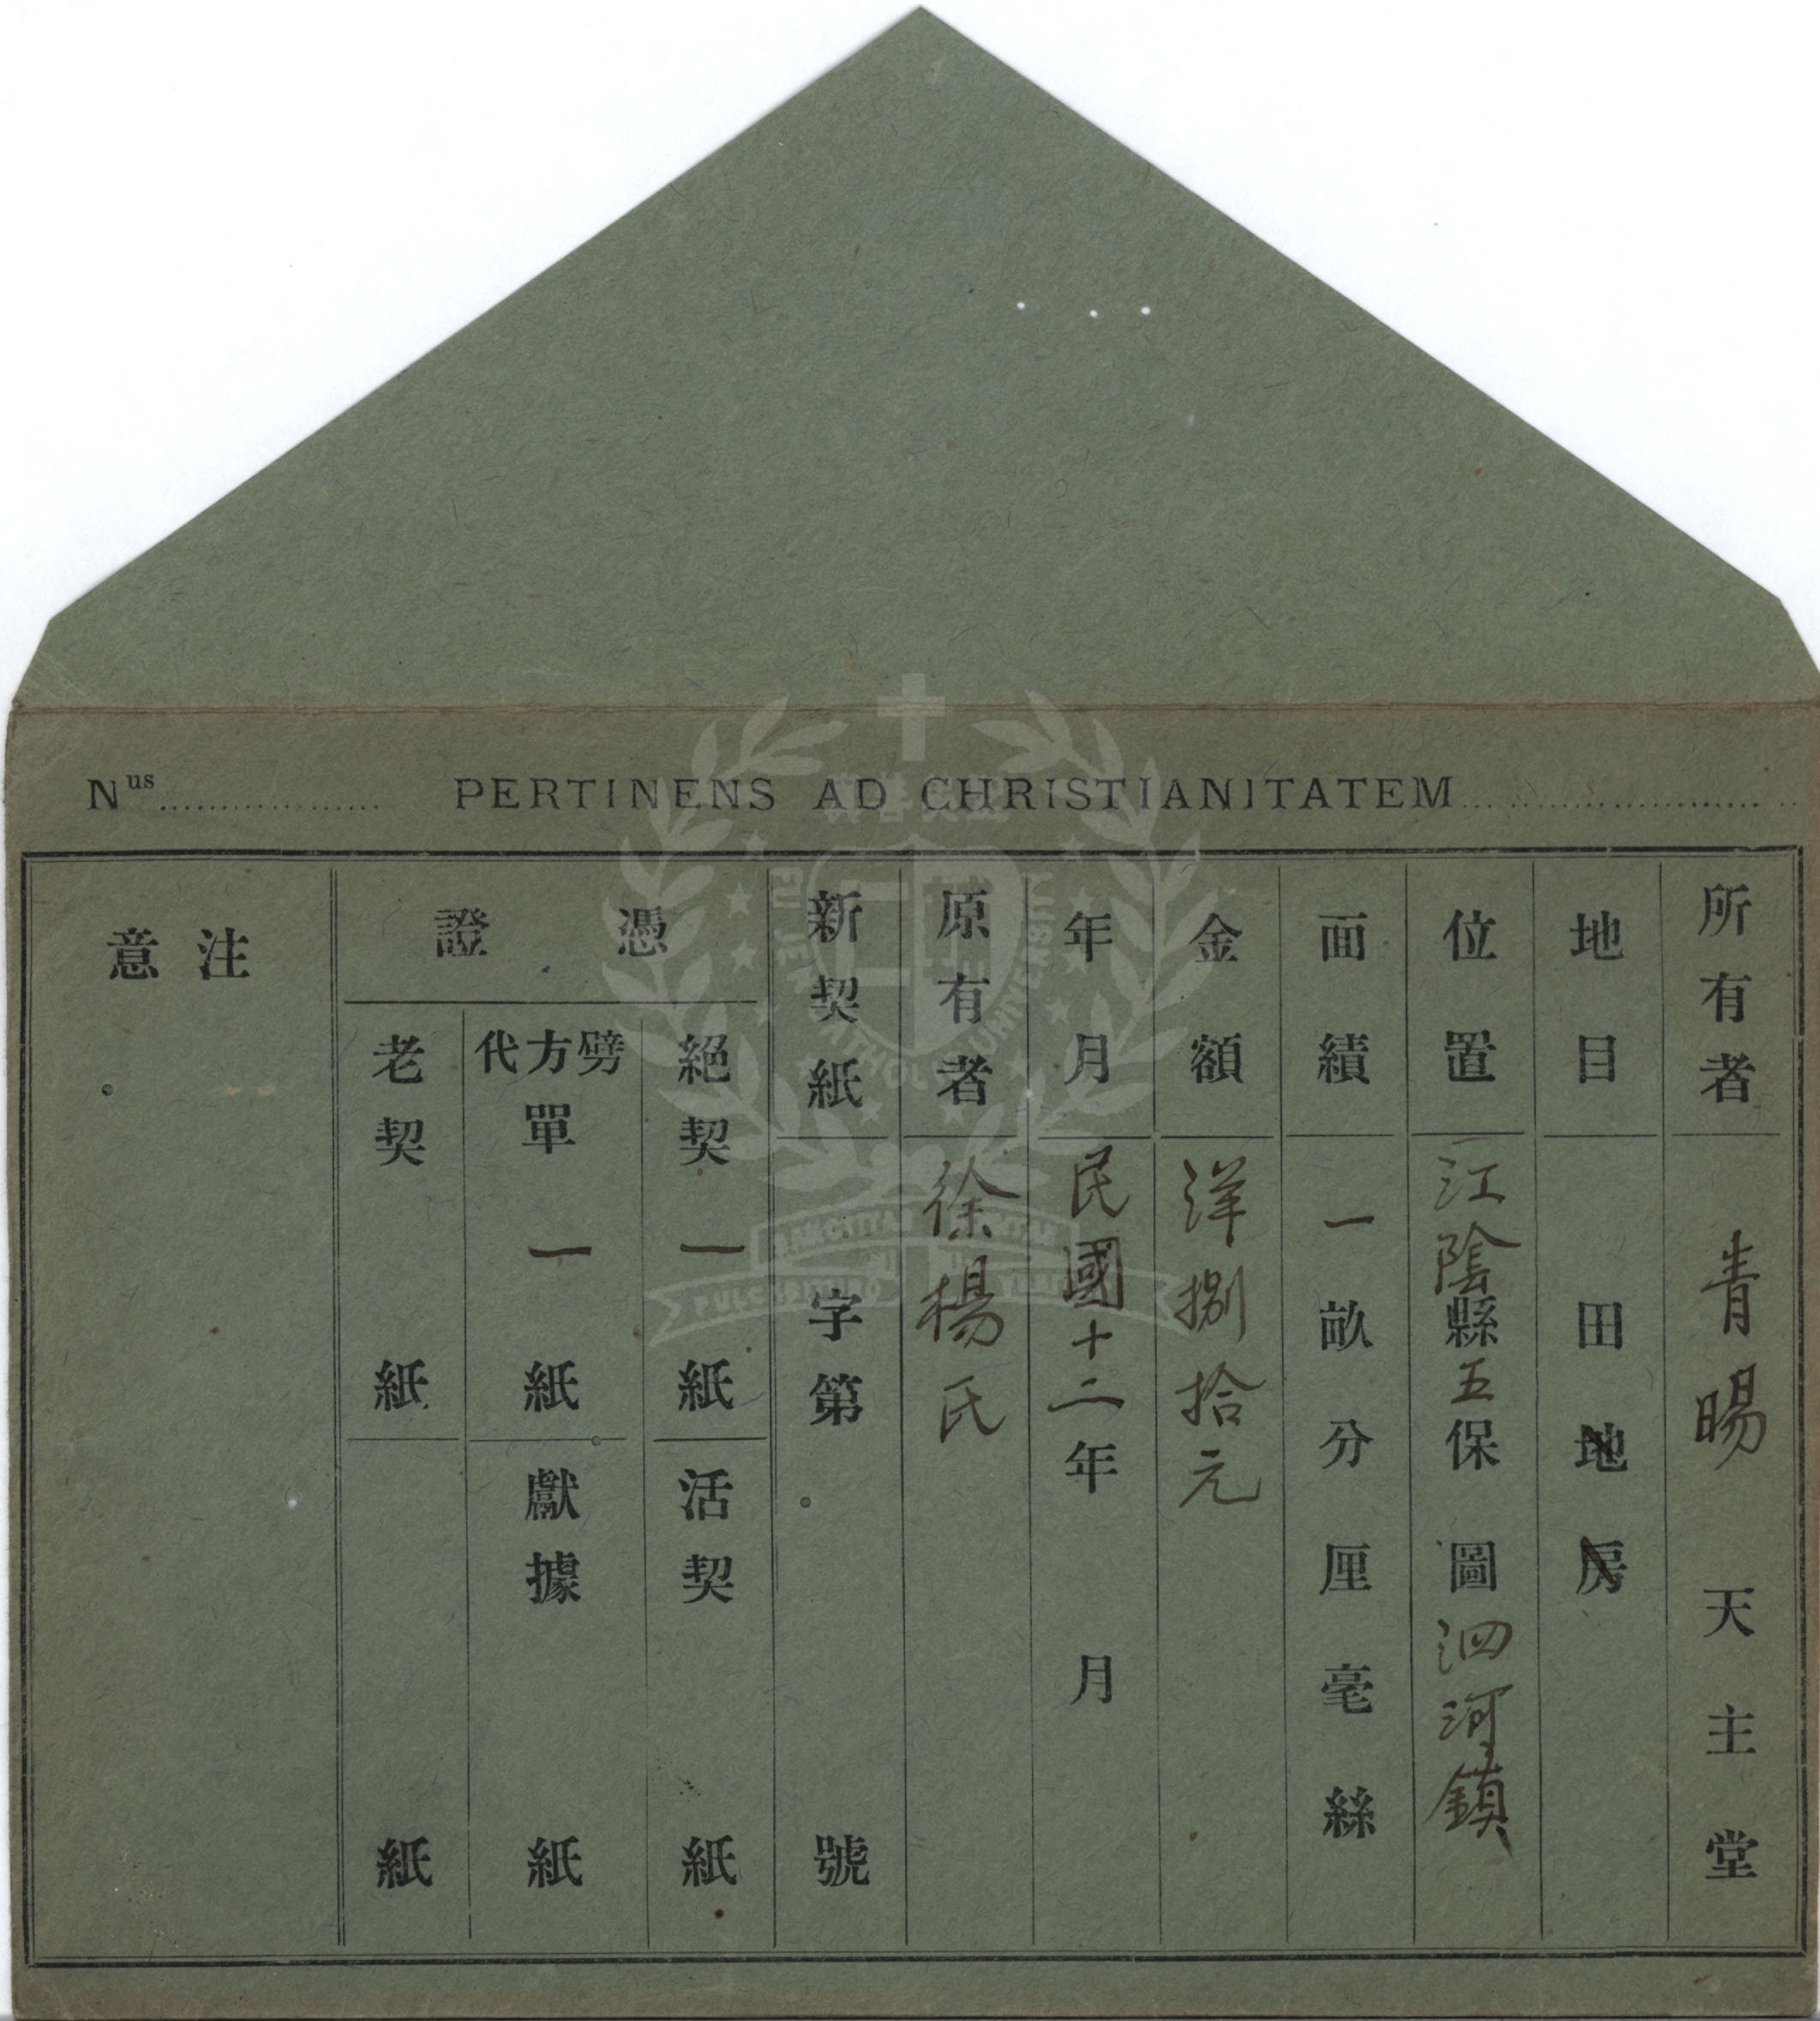 Nus.................. PERTINENS AD CHRISTIANITATEM..................
所有者 青暘 天主堂
地目 田地房
位置 江陰縣五保 圖泗河鎮
面績 一畝分厘毫絲
金額 洋捌拾元
年月 民國十二年 月
原有者 徐楊氏
新契紙 字第 號
憑證
絕契 一紙
活契 紙
劈方代單 一紙
獻據 紙
老契 紙
紙
注意